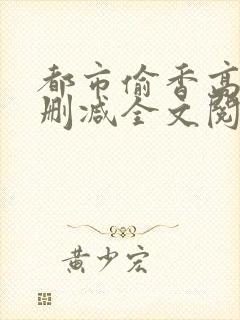 都市偷香高
删减全文阅
黄少宏